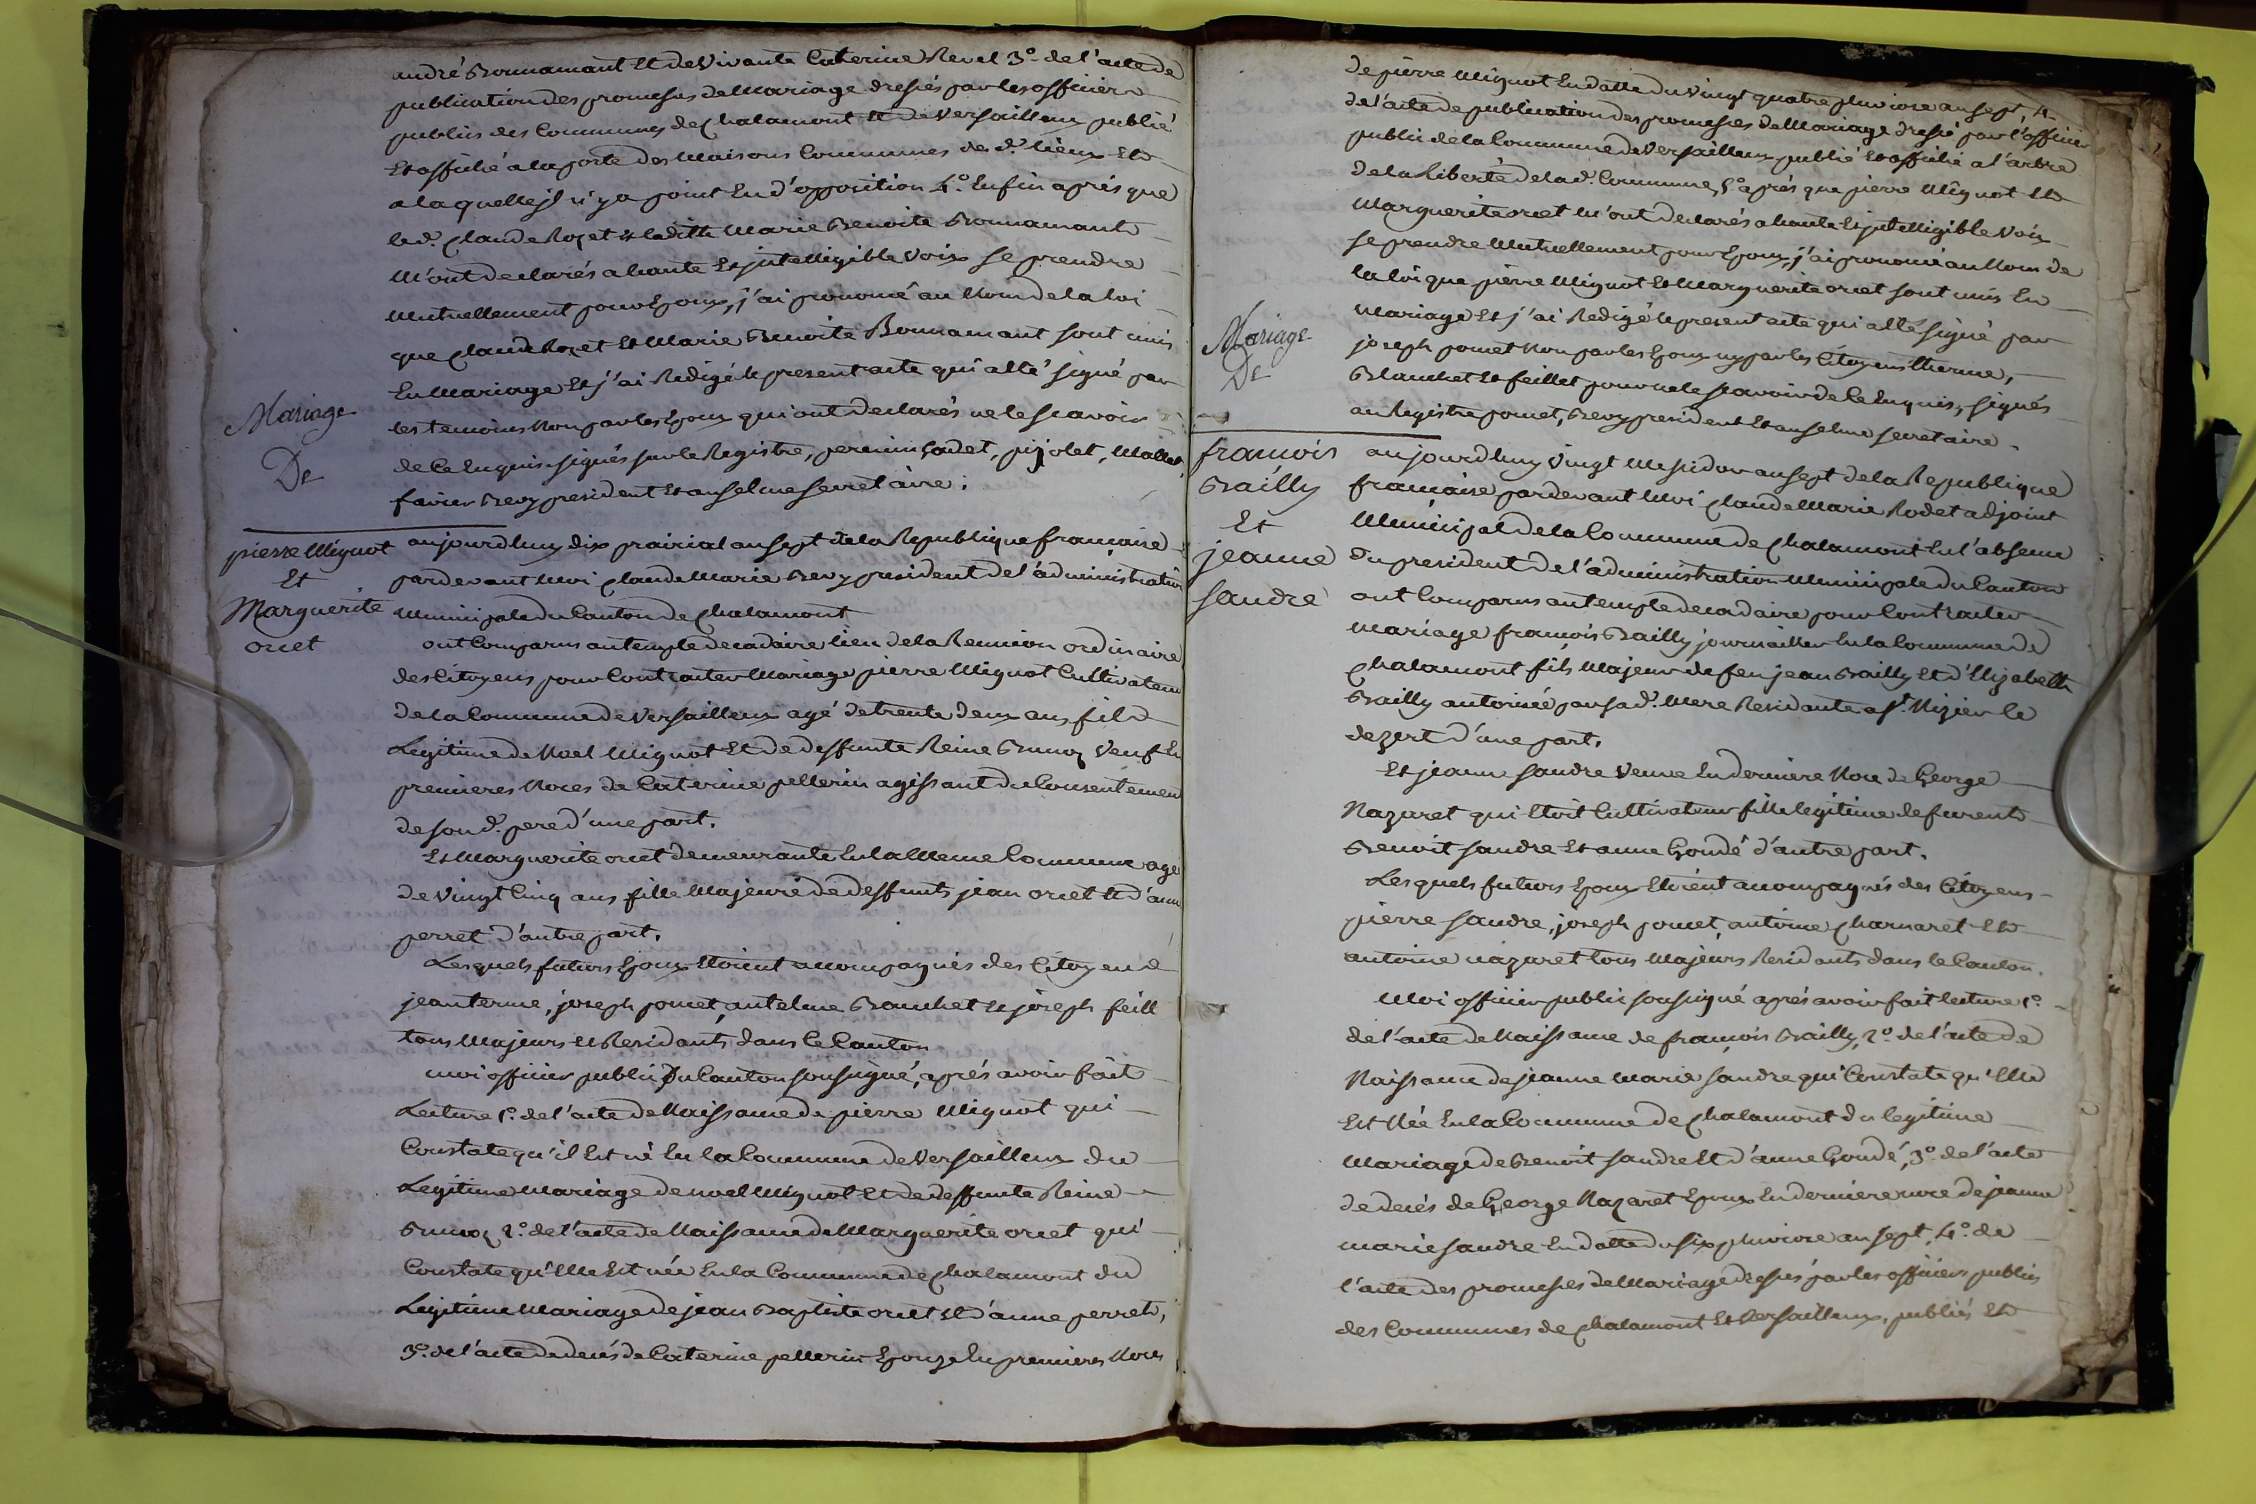 andré Bonnamant Et de Vivante Caterine Revel 3.º de l'acte de
publication des promesses de Mariage dressés par les officiers
publics des Communes de Chalamont Et de Versailleux publié
Et affiché a la porte des Maisons Communes des d.ᵗ lieux Et
a laquelle jl n'y a point Eu d'opposition 4.º Enfin aprés que
led.ᵗ Claude Rozet Et laditte Marie Benoite Bonnamant
M'ont declarés a haute Et jntelligible Voix se prendre
Mutuellement pour Epoux, j'ai prononcé au Nom de la loi
que Claude Rozet Et Marie Benoite Bonnamant sont unis
En Mariage Et j'ai Redigé le present acte qui a Eté signé par
les temoins Non par les Epoux qui ont declarés ne le scavoir
de Ce Enquis signés sur le Registre, perenin, pijolet, Mallet,
favier Revy president Et anselme secretaire.
Mariage
De
pierre Mignot
Et
Marguerite
oriet
aujourdhuy dix prairial an sept de la Republique francaise
pardevant Moi Claude Marie Revy president de l'administration
Municipale du Canton de Chalamont
ont Comparus au temple decadaire lieu de la Reunion ordinaire
des Citoyens pour Contracter Mariage pierre Mignot Cultivateur
de la Commune de Versailleux agé de trente deux ans fils
Legitime de Noel Mignot Et de deffunte Reine Brunoz Veuf En
premieres Noces de Caterine pellerin agissant du Consentement
de son d.ᵗ pere d'une part.
Et Marguerite oriet demeurante En la Meme Commune age
de Vingt Cinq ans fille Majeure de deffunts jean oriet Et d'ann
perret d'autre part.
Lesquels futurs Epoux Etoient accompagnés des Citoyens
jean terme, joseph pomet, antelme Branchet Et joseph feill
tous Majeurs Et Residants dans le Canton
Moi officier public du Canton sousigné, aprés avoir fait
Lecture 1.º de l'acte de Naissance de pierre Mignot qui
Constate qu'il Est né En la Commune de Versailleux du
Legitime Mariage de noel Mignot Et de deffunte Reine
Brunoz 2.º de l'acte de Naissance de Marguerite oriet qui
Constate qu'Elle Est née En la Commune de Chalamont du
Legitime Mariage de jean Baptiste oriet Et d'anne perret,
3.º de l'acte de decés de Caterine pellerin Epouze En premieres Noces
de pierre Mignot En datte du Vingt quatre pluviose an sept, 4.
de l'acte de publication des promesses de Mariage dressé par l'officier
public de la Commune de Versailleux publié Et affiché a l'arbre
de la Liberté de la d.ᵗ Commune, 5.º aprés que pierre Mignot Et
Marguerite oriet M'ont declarés a haute Et jntelligible Voix
se prendre Mutuellement pour Epoux, j'ai prononcé au Nom de
la loi que pierre Mignot Et Marguerite oriet sont unis En
Mariage Et j'ai Redigé le present acte qui a Eté signé par
joseph pomet Non par les Epoux ny par les Citoyens therme,
Blanchet Et feillet pour ne le scavoir de Ce Enquis, signés
au Registre pomet, Revy president Et anselme secretaire.
Mariage
De
francois
Bailly
Et
jeanne
sandre
aujourdhuy Vingt Messidor an sept de la Republique
francaise pardevant Moi Claude Marie Rodet adjoint
Municipal de la Commune de Chalamont En l'absence
du president de l'administration Municipale du Canton
ont Comparus au temple decadaire pour Contracter
Mariage francois Bailly journallier En la Commune de
Chalamont fils Majeur de feu jean Bailly Et d'Elizabeth
Bailly autorisée par sa d.ᵗ Mere Residante a s.ᵗ Nizier le
dezert d'une part.
Et jeanne sandre Veuve En derniere Noce de George
Nazaret qui Etoit Cultivateur fille legitime de furent
Benoit sandre Et anne Goudé d'autre part.
Lesquels futurs Epoux Etoient accompagnés des Citoyens
pierre sandre, joseph pomet, antoine Charnaret Et
antoine nazaret tous Majeurs Residants dans le Canton.
Moi officier public sousigné aprés avoir fait lecture 1.º
de l'acte de Naissance de francois Bailly, 2.º de l'acte de
Naissance de jeanne Marie sandre qui Constate qu'Elle
Est Née En la Commune de Chalamont du legitime
Mariage de Benoit sandre Et d'anne Goudé, 3.º de l'acte
de decés de George Nazaret Epoux En derniere noce de jeanne
marie sandre En datte du six pluviose an sept, 4.º de
l'acte des promesses de Mariage dressés par les officiers publics
des Communes de Chalamont Et Versailleux, publiés Et